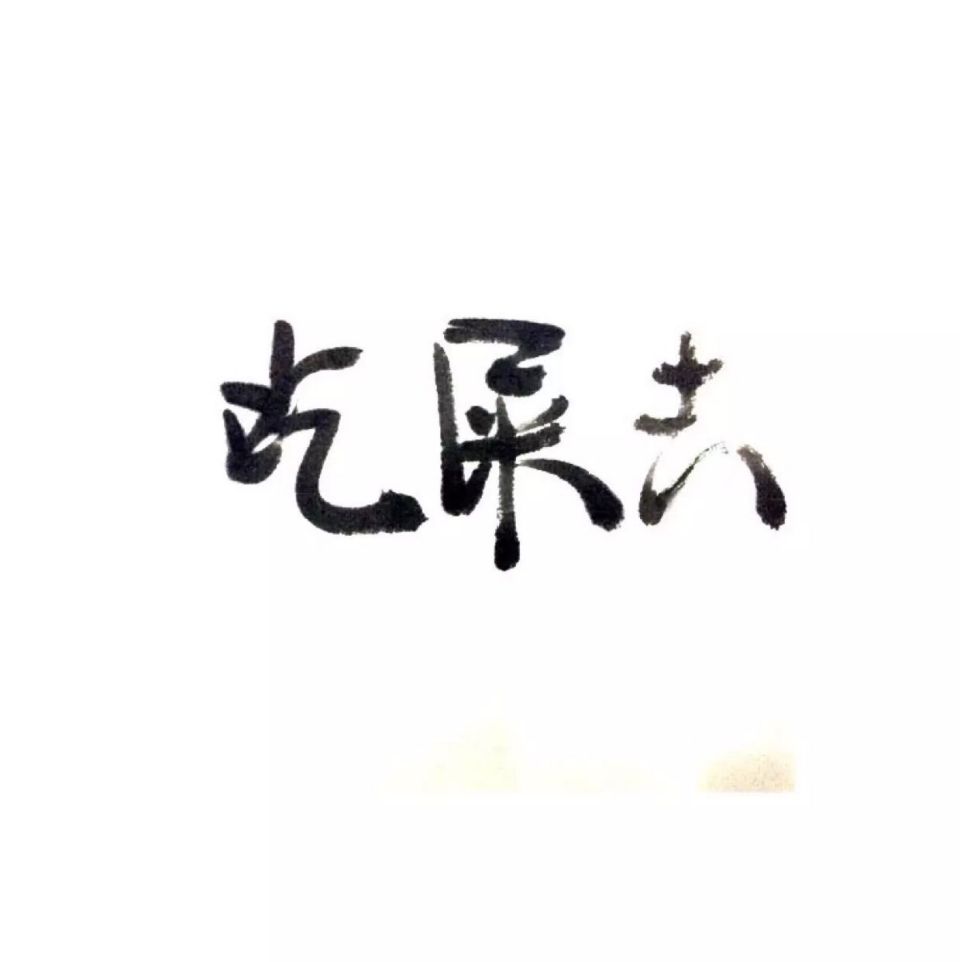 吃屎去